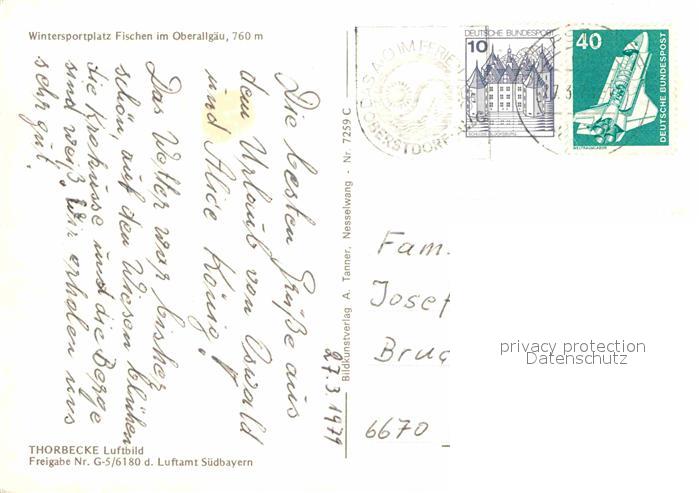 Wintersportplatz Fischen im Oberallgäu, 760 m
Die besten Grüße aus
dem Urlaub von Oswald
und Alice König!
Das Wetter war bisher
schön, auf den Wiesen blühen
die Krokusse und die Berge
sind weiß. Wir erholen uns
sehr gut.
27.3.1979
THORBECKE Luftbild
Freigabe Nr. G-5/6180 d. Luftamt Südbayern
Bildkunstverlag A. Tanner, Nesselwang - Nr. 7259 C
OBERSTDORF
10
DEUTSCHE BUNDESPOST
SCHLOSS GLÜCKSBURG
40
DEUTSCHE BUNDESPOST
WELTRAUMLABOR
Fam.
Josef
Bruc
6670
privacy protection
Datenschutz